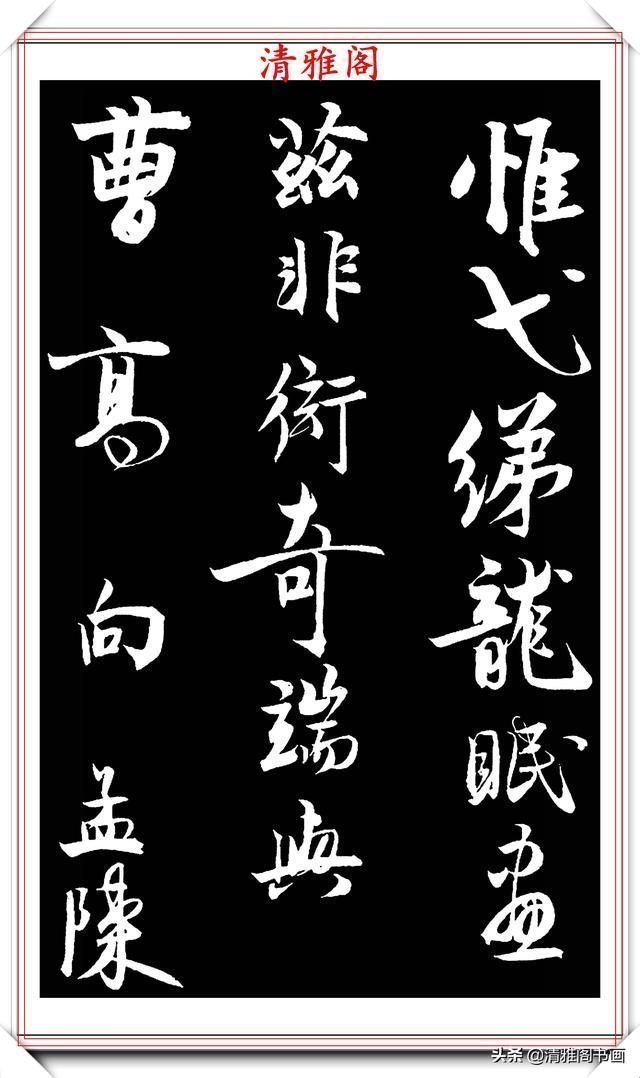 清雅阁
惟弋绨龍眠畫
茲非衒奇端與
曹髙向孟陳
头条@清雅阁书画